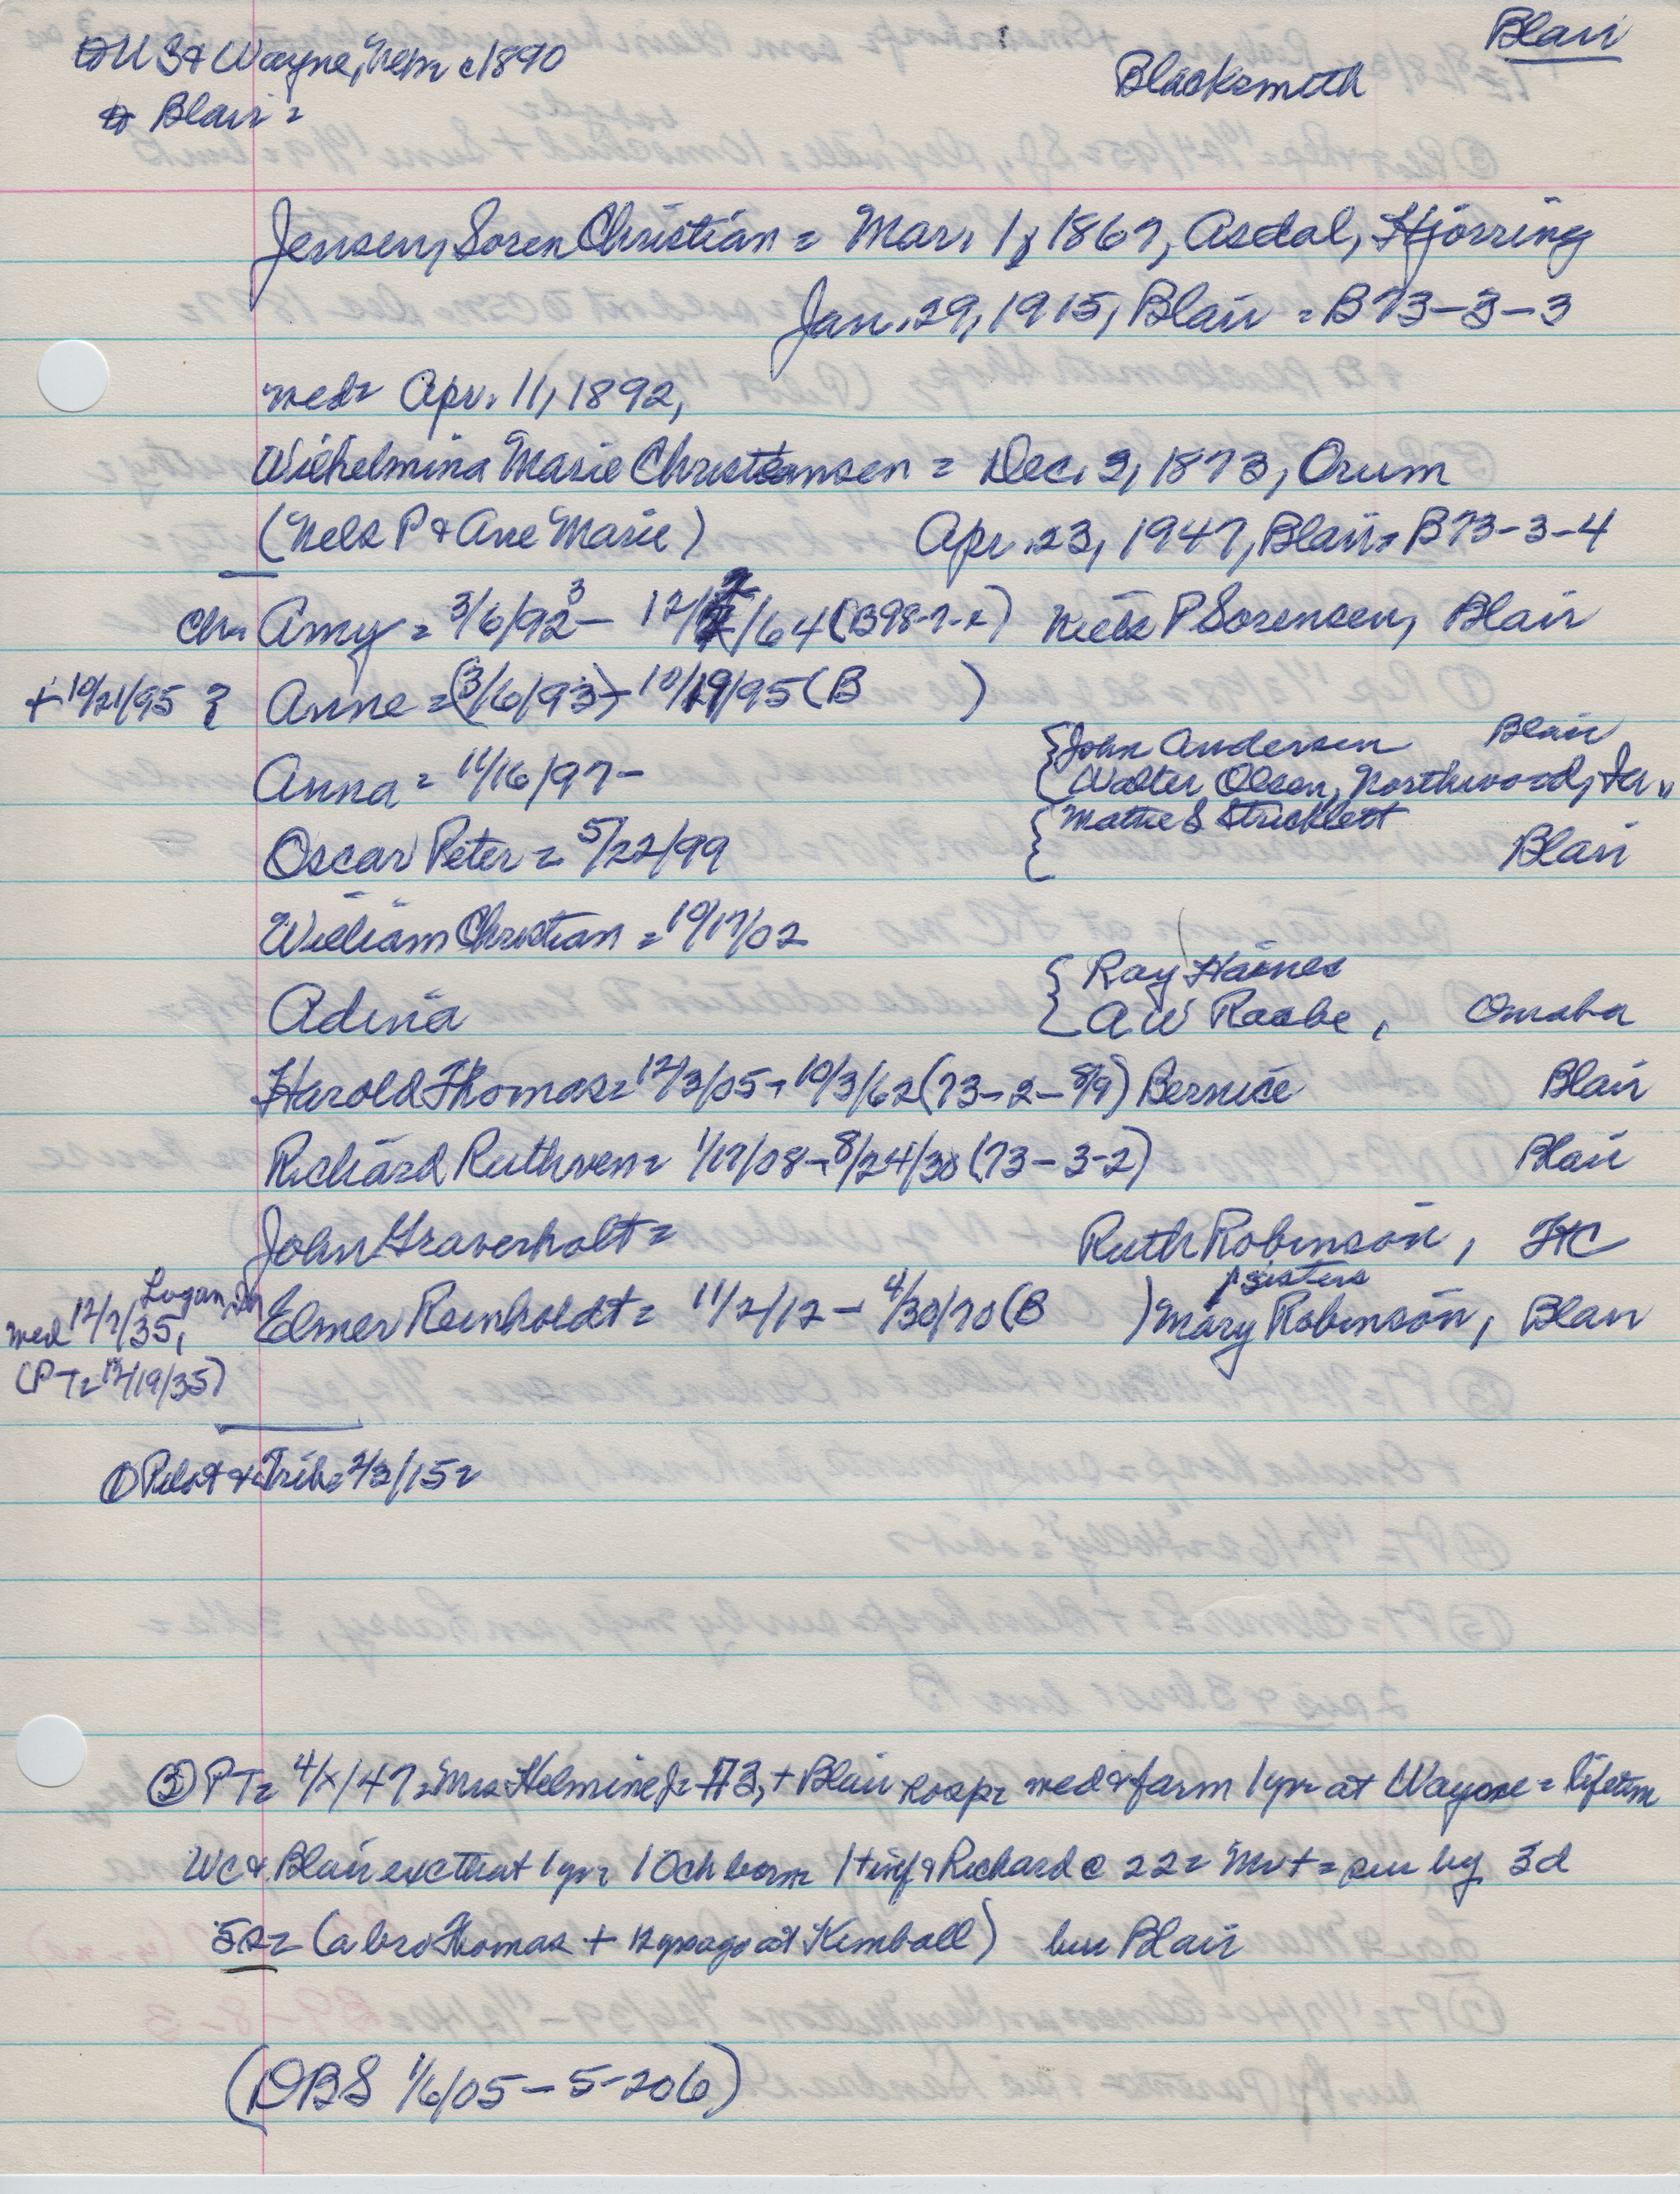 Blair
to U S & Wayne, Nebr c1890
Blacksmith
to Blair =
Jensen, Soren Christian = Mar. 1, 1867, Asdal, Hjorring
Jan. 29, 1915, Blair = B73-3-3
med = Apr. 11, 1892,
Wilhelmina Marie Christensen = Dec. 2, 1873, Orum
(Nels P & Ane Marie) Apr. 23, 1947, Blair = B73-3-4
Ch = Amy = 3/6/93 - 12/ /64 (B98-7- ) Niels P Sorensen, Blair
+ 10/21/95 ? Anne = (3/6/93) - 10/19/95 (B )
Anna = 11/16/97 - {John Andersen Blair
{Walter Olsen, Northwood, Ia
Oscar Peter = 5/22/99 {Matie S Stricklett Blair
William Christian = 10/17/02
Adina {Ray Haines
{A W Raabe, Omaha
Harold Thomas = 12/3/05 - 10/3/62 (73-2-8/9) Bernice Blair
Richard Ruthven = 1/17/08 - 8/24/30 (73-3-2) Blair
John Graverholt = Ruth Robinson,
sisters
Elmer Reinholdt = 11/2/12 - 4/30/70 (B ) Mary Robinson, Blair
Logan, Ia
med 12/7/35,
(PT = 12/19/35)
① Pilot & Trib = 2/3/15 =
③ PT = 4/x/47 = Mrs Helmine J = 73, + Blair hosp = med & farm 1 yr at Wayne = lifetm
WC & Blair exc that 1 yr = 10 ch born = 1 + inf & Richard @ 22 = Mr + = sur by 3d
5s = (a bro Thomas + 12 yrs ago at Kimball) bur Blair
(DBS 1/6/05 - 5-206)